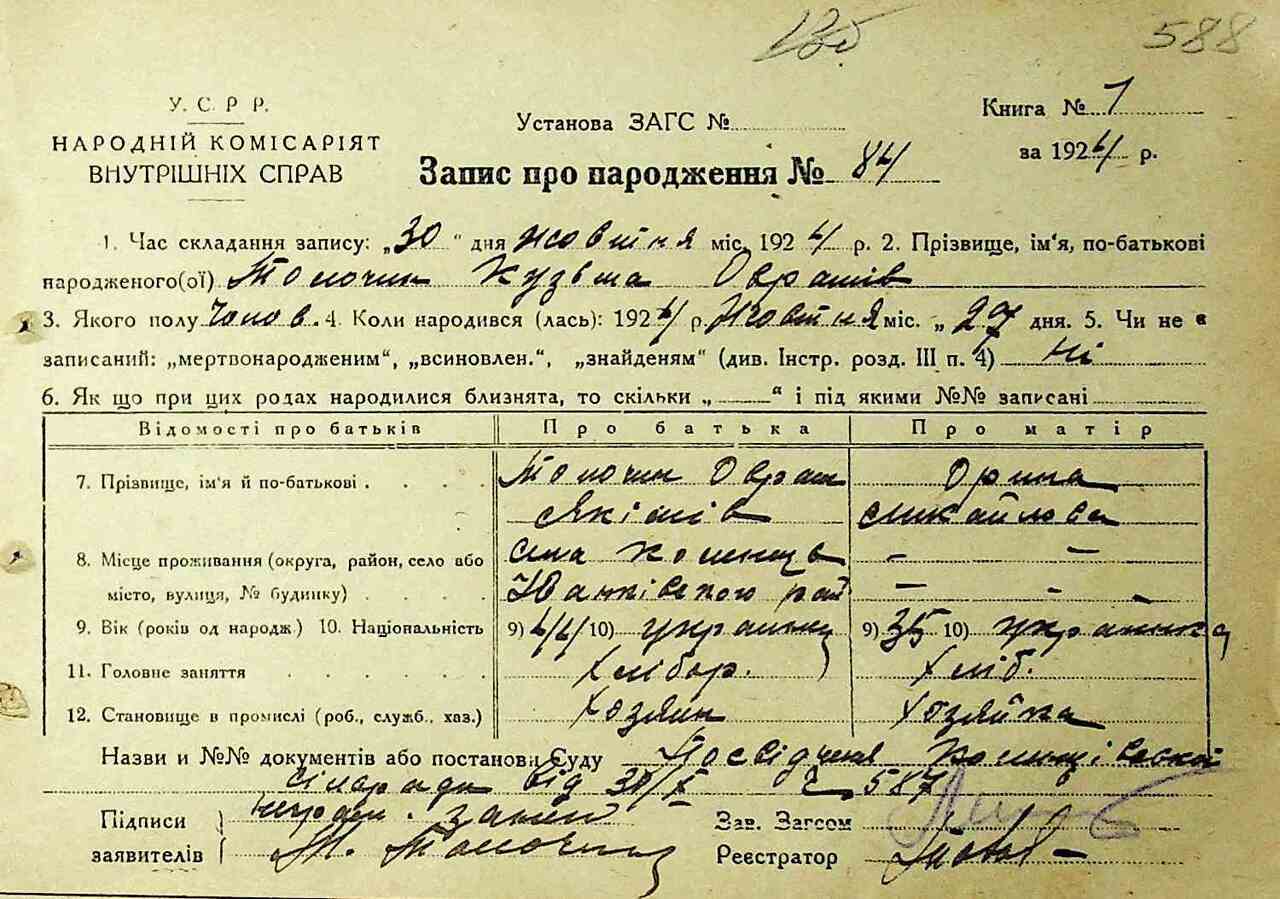 588
У. С. Р Р.
Книга № 1
НАРОДНІЙ КОМІСАРІЯТ
Установа ЗАГС №
ВНУТРІШНІХ СПРАВ
за 1924 р.
Запис про народження № 84
1. Час складання запису: „30“ дня жовтня міс. 1924 р. 2. Прізвище, ім‘я, по-батькові
народженого(ої) Толочин Кузьма Овramів
3. Якого полу чолов. 4. Коли народився (лась): 1924 р. Жовтня міс. „27 дня. 5. Чи не є
записаний: „мертвонародженим“, „всиновлен.“, „знайденям“ (див. Інстр. розд. III п. 4) Ні
6. Як що при цих родах народилися близнята, то скільки „ “ і під якими №№ записані
Відомості про батьків Про батька Про матір
7. Прізвище, ім‘я й по-батькові Толочин Оврам Орина
Якімів Михайлова
8. Місце проживання (округа, район, село або села - -
місто, вулиця, № будинку) рай - - -
9. Вік (років од народж.) 10. Національність 9) 44 10) українец 9) 35 10) українка
11. Головне заняття Хлібор. Хліб.
12. Становище в промислі (роб., служб., хаз.) Хозяин Хозяйка
Назви и №№ документів або постанови Суду Посвідченя
сільради від 30/X 587
Підписи Зав. Загсом
заявителів Т. Толочин Реєстратор